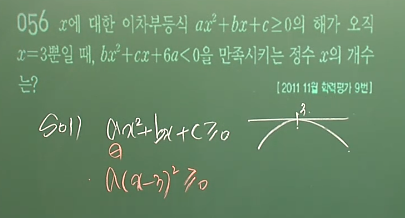 056 x에 대한 이차부등식 ax²+bx+c≥0의 해가 오직
x=3뿐일 때, bx²+cx+6a<0을 만족시키는 정수 x의 개수
는?
[2011 11월 학력평가 9번]
Sol) ax²+bx+c≥0
⊖
a(x-3)²≥0
3